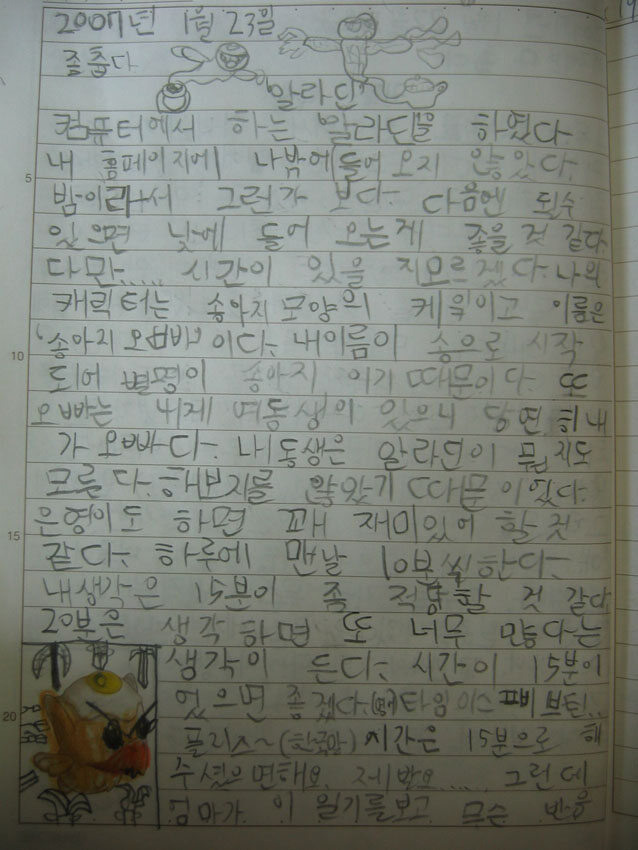 2007년 1월 23일
졸춥다
알라딘
컴퓨터에서 하는 알라딘을 하였다.
내 홈페이지에 나밖에 들어 오지 않았다.
밤이라서 그런가 보다. 다음엔 될수
있으면 낮에 들어 오는게 좋을 것 같다
다만..... 시간이 있을 지모르겠다. 나의
캐릭터는 송아지 모양의 케릭이고 이름은
'송아지 오빠' 이다. 내이름이 송으로 시작
되어 별명이 송아지 이기 때문이다. 또
오빠는 내게 여동생의 있으니 당연 히내
가 오빠다. 내동생은 알라딘이 뭔지도
모른다. 해보지를 않았기 때문이었다.
은영이도 하면 꽤 재미있어 할 것
같다. 하루에 맨날 10분씩한다.
내생각은 15분이 좀 적당할 것 같다
20분은 생각하면 또 너무 많다는
생각이 든다. 시간이 15분이
었으면 좋겠다. 타임 이즈 피브틴..
플리즈~(한국말) 시간은 15분으로 해
주셨으면해요. 제발요..... 그런데
엄마가 이 일기를보고 무슨 반응
5
10
15
20